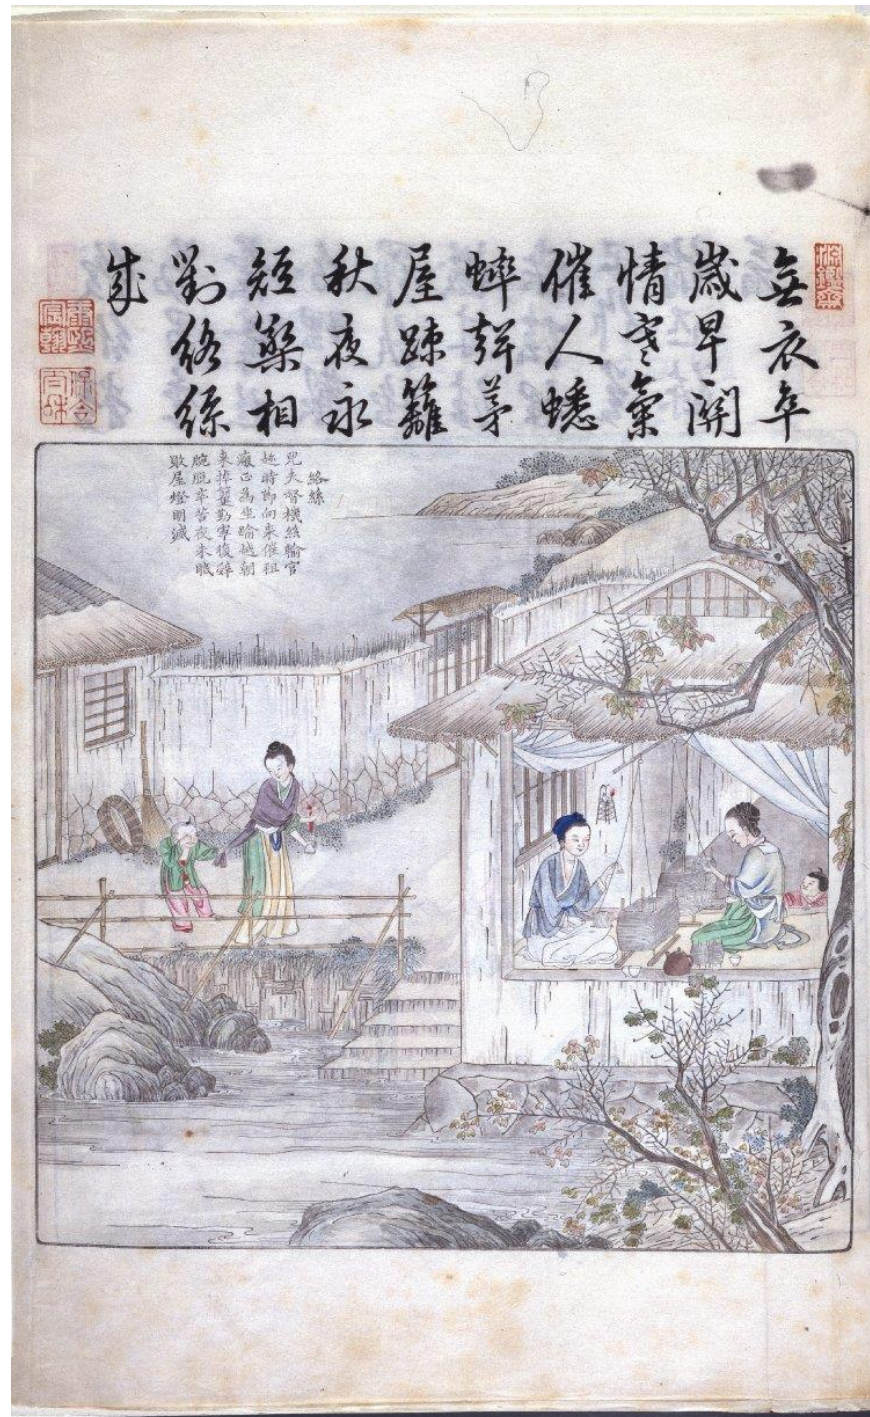 淵鑒齋
無衣卒
歲早關
情寒氣
催人蟋
蟀聲茅
屋疎籬
秋夜永
短檠相
對絡絲
成
康熙宸翰
絡絲
兒夫督機絲輸官
趁時節向來催租
瘢正爲坐踰越朝
來掉籰勤寧復辭
腕脫辛苦夜未眠
敗屋燈明滅